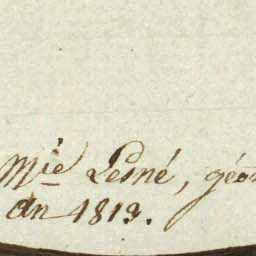 Mie Lesné, géo
An 1813.